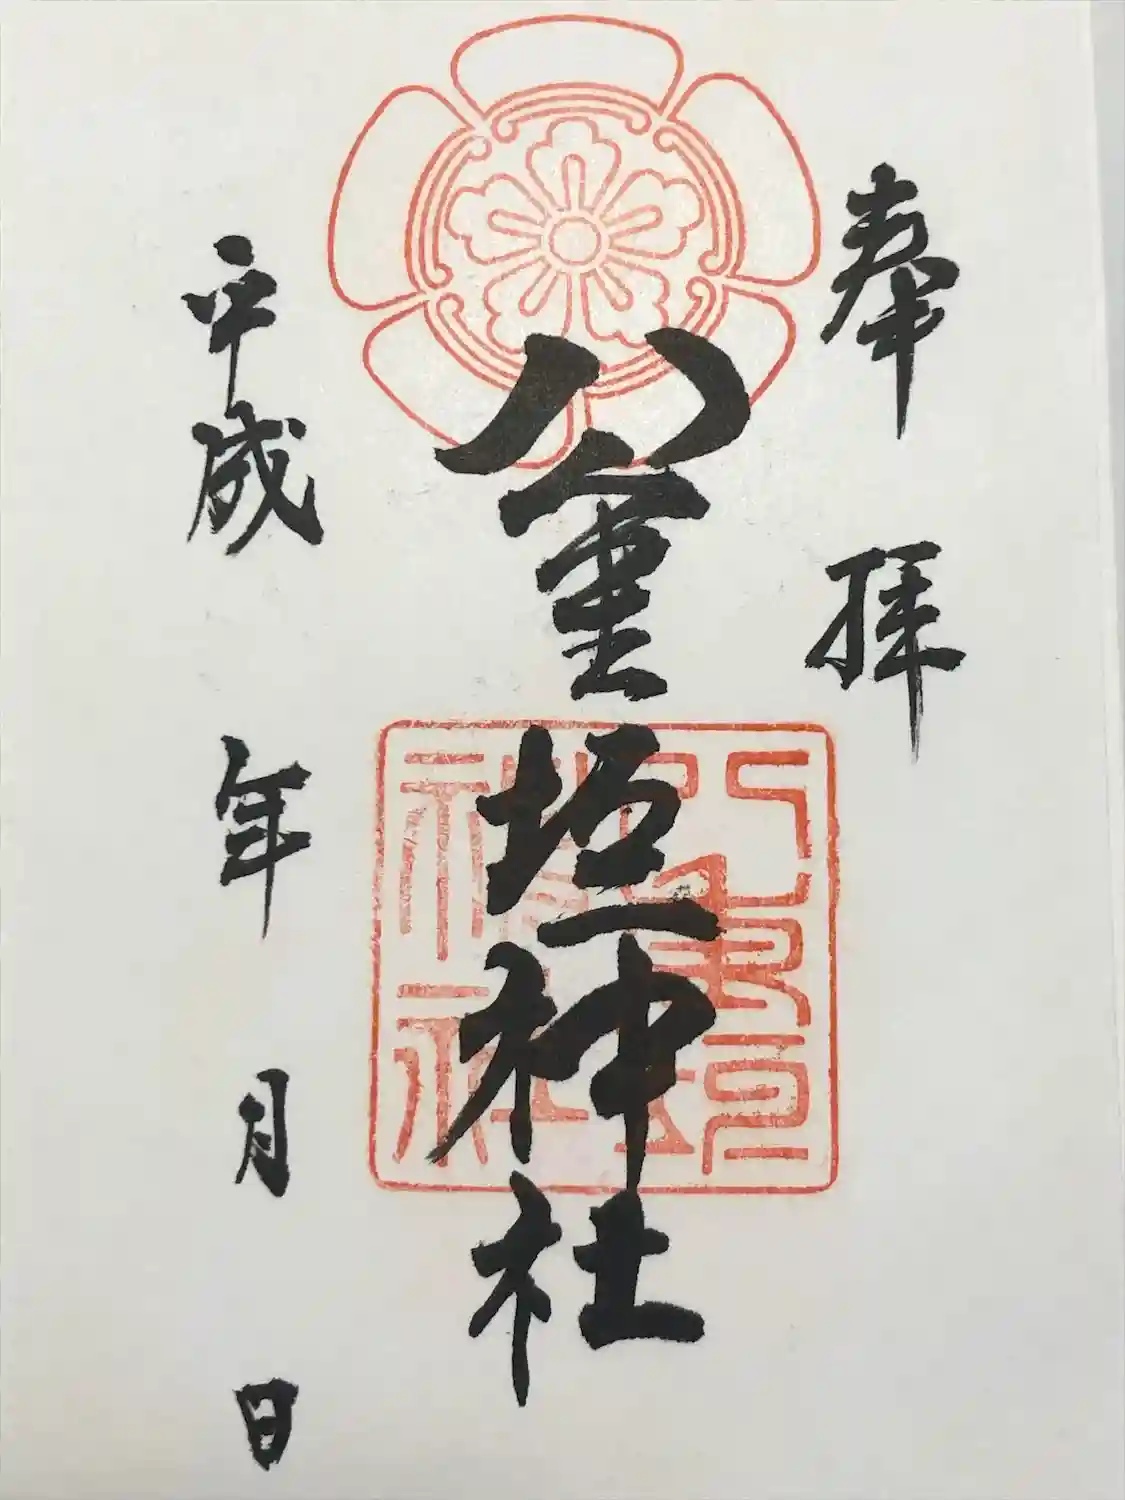 奉拝
八重垣神社
平成 年 月 日
八重垣神社